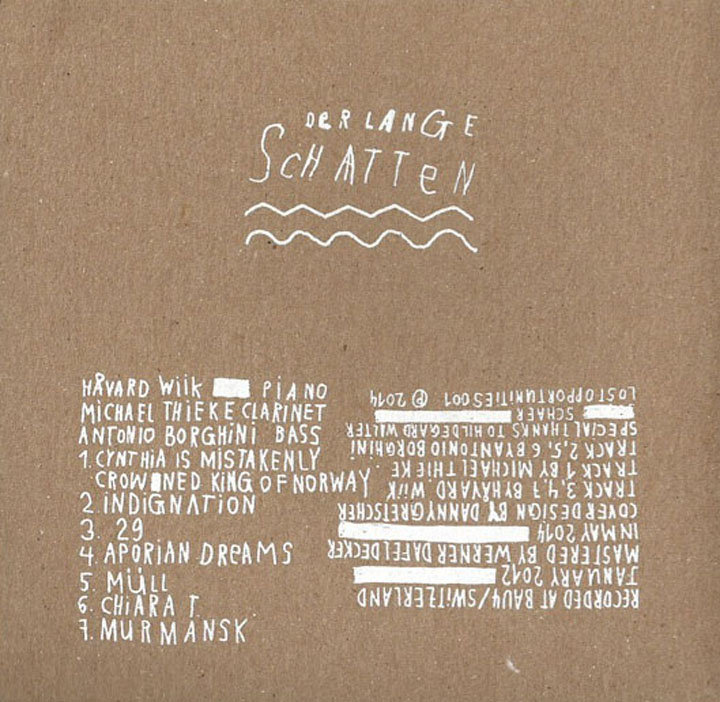 DER LANGE
SCHATTEN
HÅVARD WIIK PIANO
MICHAEL THIEKE CLARINET
ANTONIO BORGHINI BASS
1. CYNTHIA IS MISTAKENLY
CROWNED KING OF NORWAY
2 INDIGNATION
3. 29
4. APORIAN DREAMS
5. MÜLL
6. CHIARA T.
7. MURMANSK
RECORDED AT BAU4/SWITZERLAND
JANUARY 2012
MASTERED BY WERNER DAFELDECKER
IN MAY 2014
COVER DESIGN BY DANNYGRETSCHER
TRACK 3,4,7 BY HÅVARD WIIK.
TRACK 1 BY MICHAEL THIEKE.
TRACK 2,5,6 BY ANTONIO BORGHINI
SPECIAL THANKS TO HILDEGARD WALTER
SCHAER
LOST OPPORTUNITIES 001 ℗ 2014